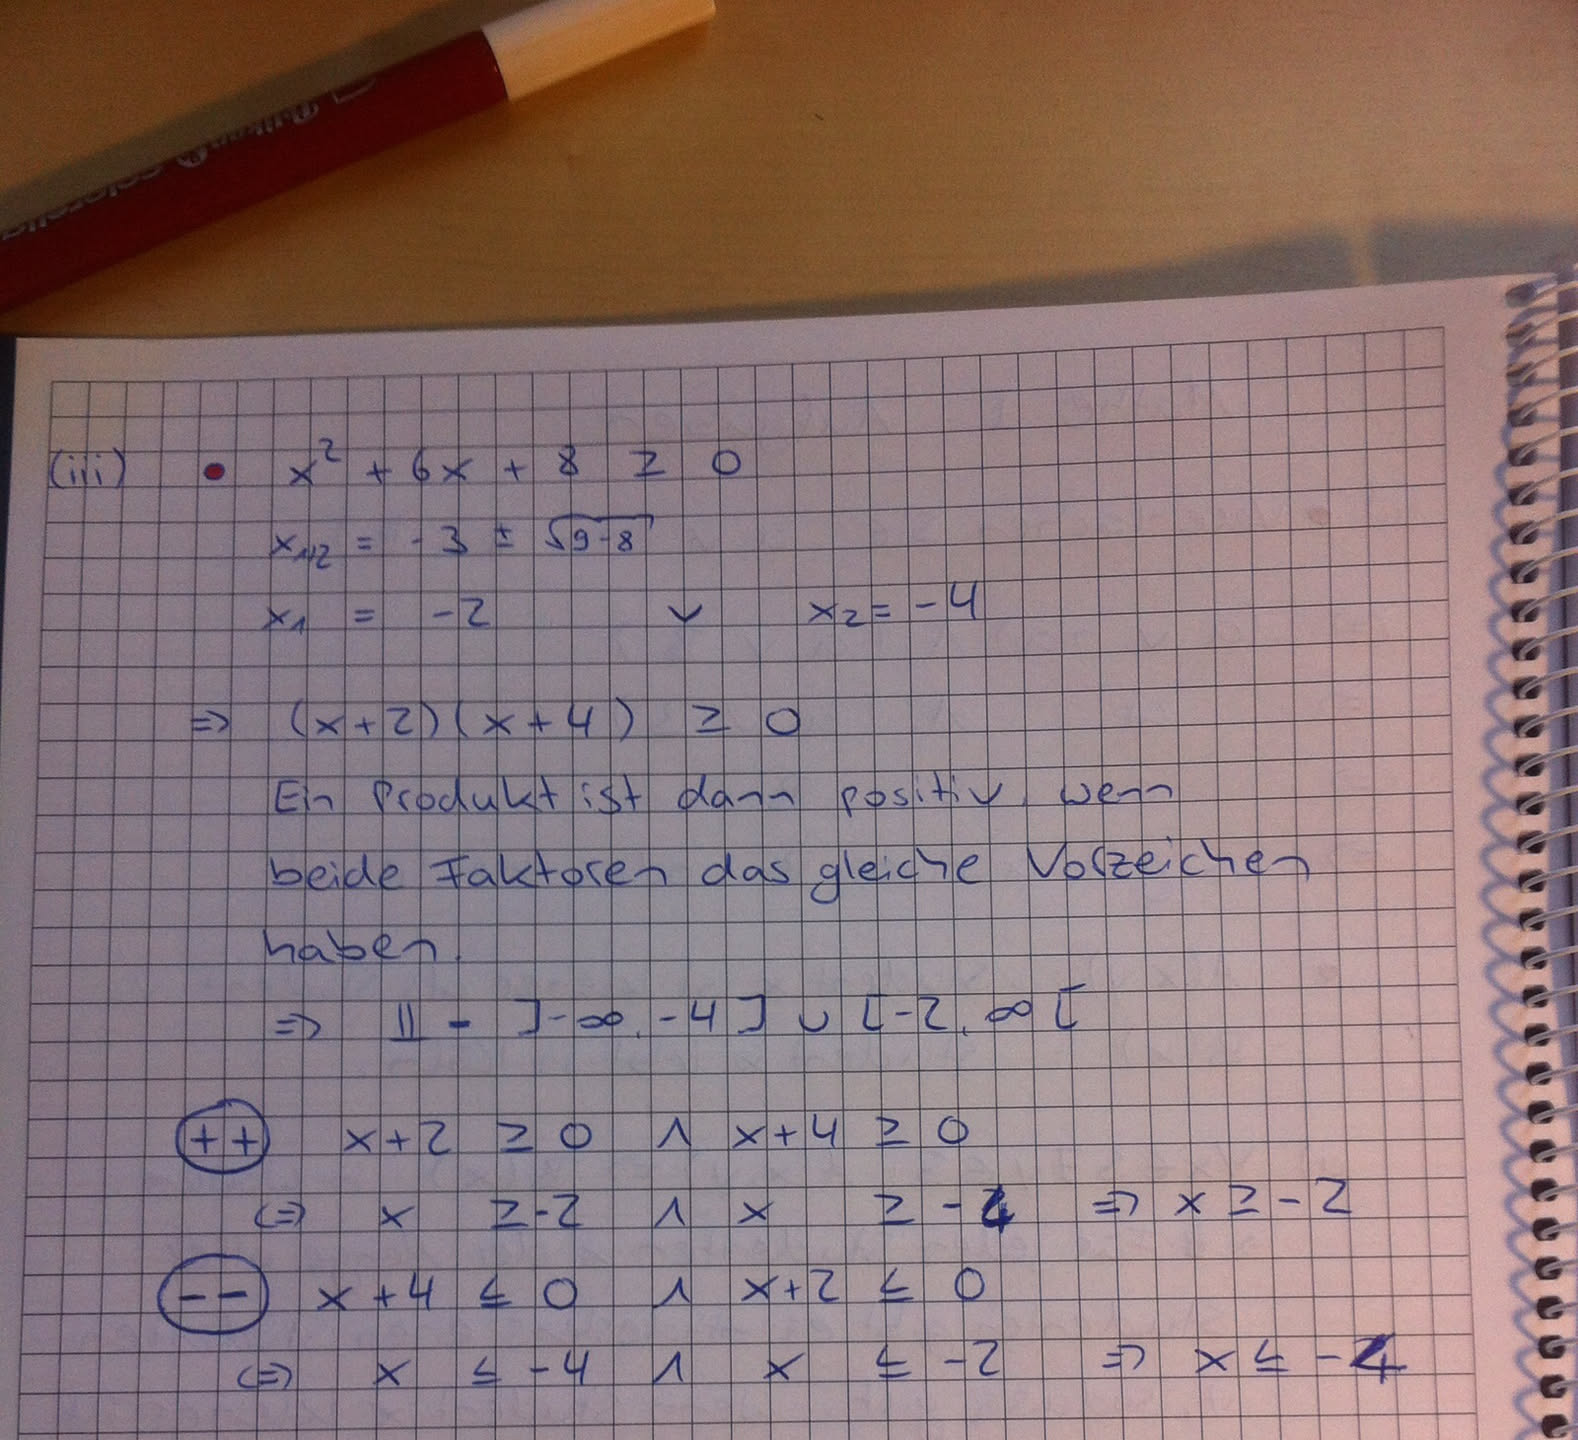 Pelikan colorella
(iii) • x² + 6x + 8 ≥ 0
x₁/₂ = -3 ± √9-8
x₁ = -2 ∨ x₂ = -4
⇒ (x+2)(x+4) ≥ 0
Ein Produkt ist dann positiv, wenn
beide Faktoren das gleiche Vorzeichen
haben.
⇒ 𝕃 = ]-∞, -4] ∪ [-2, ∞[
++ x+2 ≥ 0 ∧ x+4 ≥ 0
⇔ x ≥ -2 ∧ x ≥ -4 ⇒ x ≥ -2
-- x+4 ≤ 0 ∧ x+2 ≤ 0
⇔ x ≤ -4 ∧ x ≤ -2 ⇒ x ≤ -4